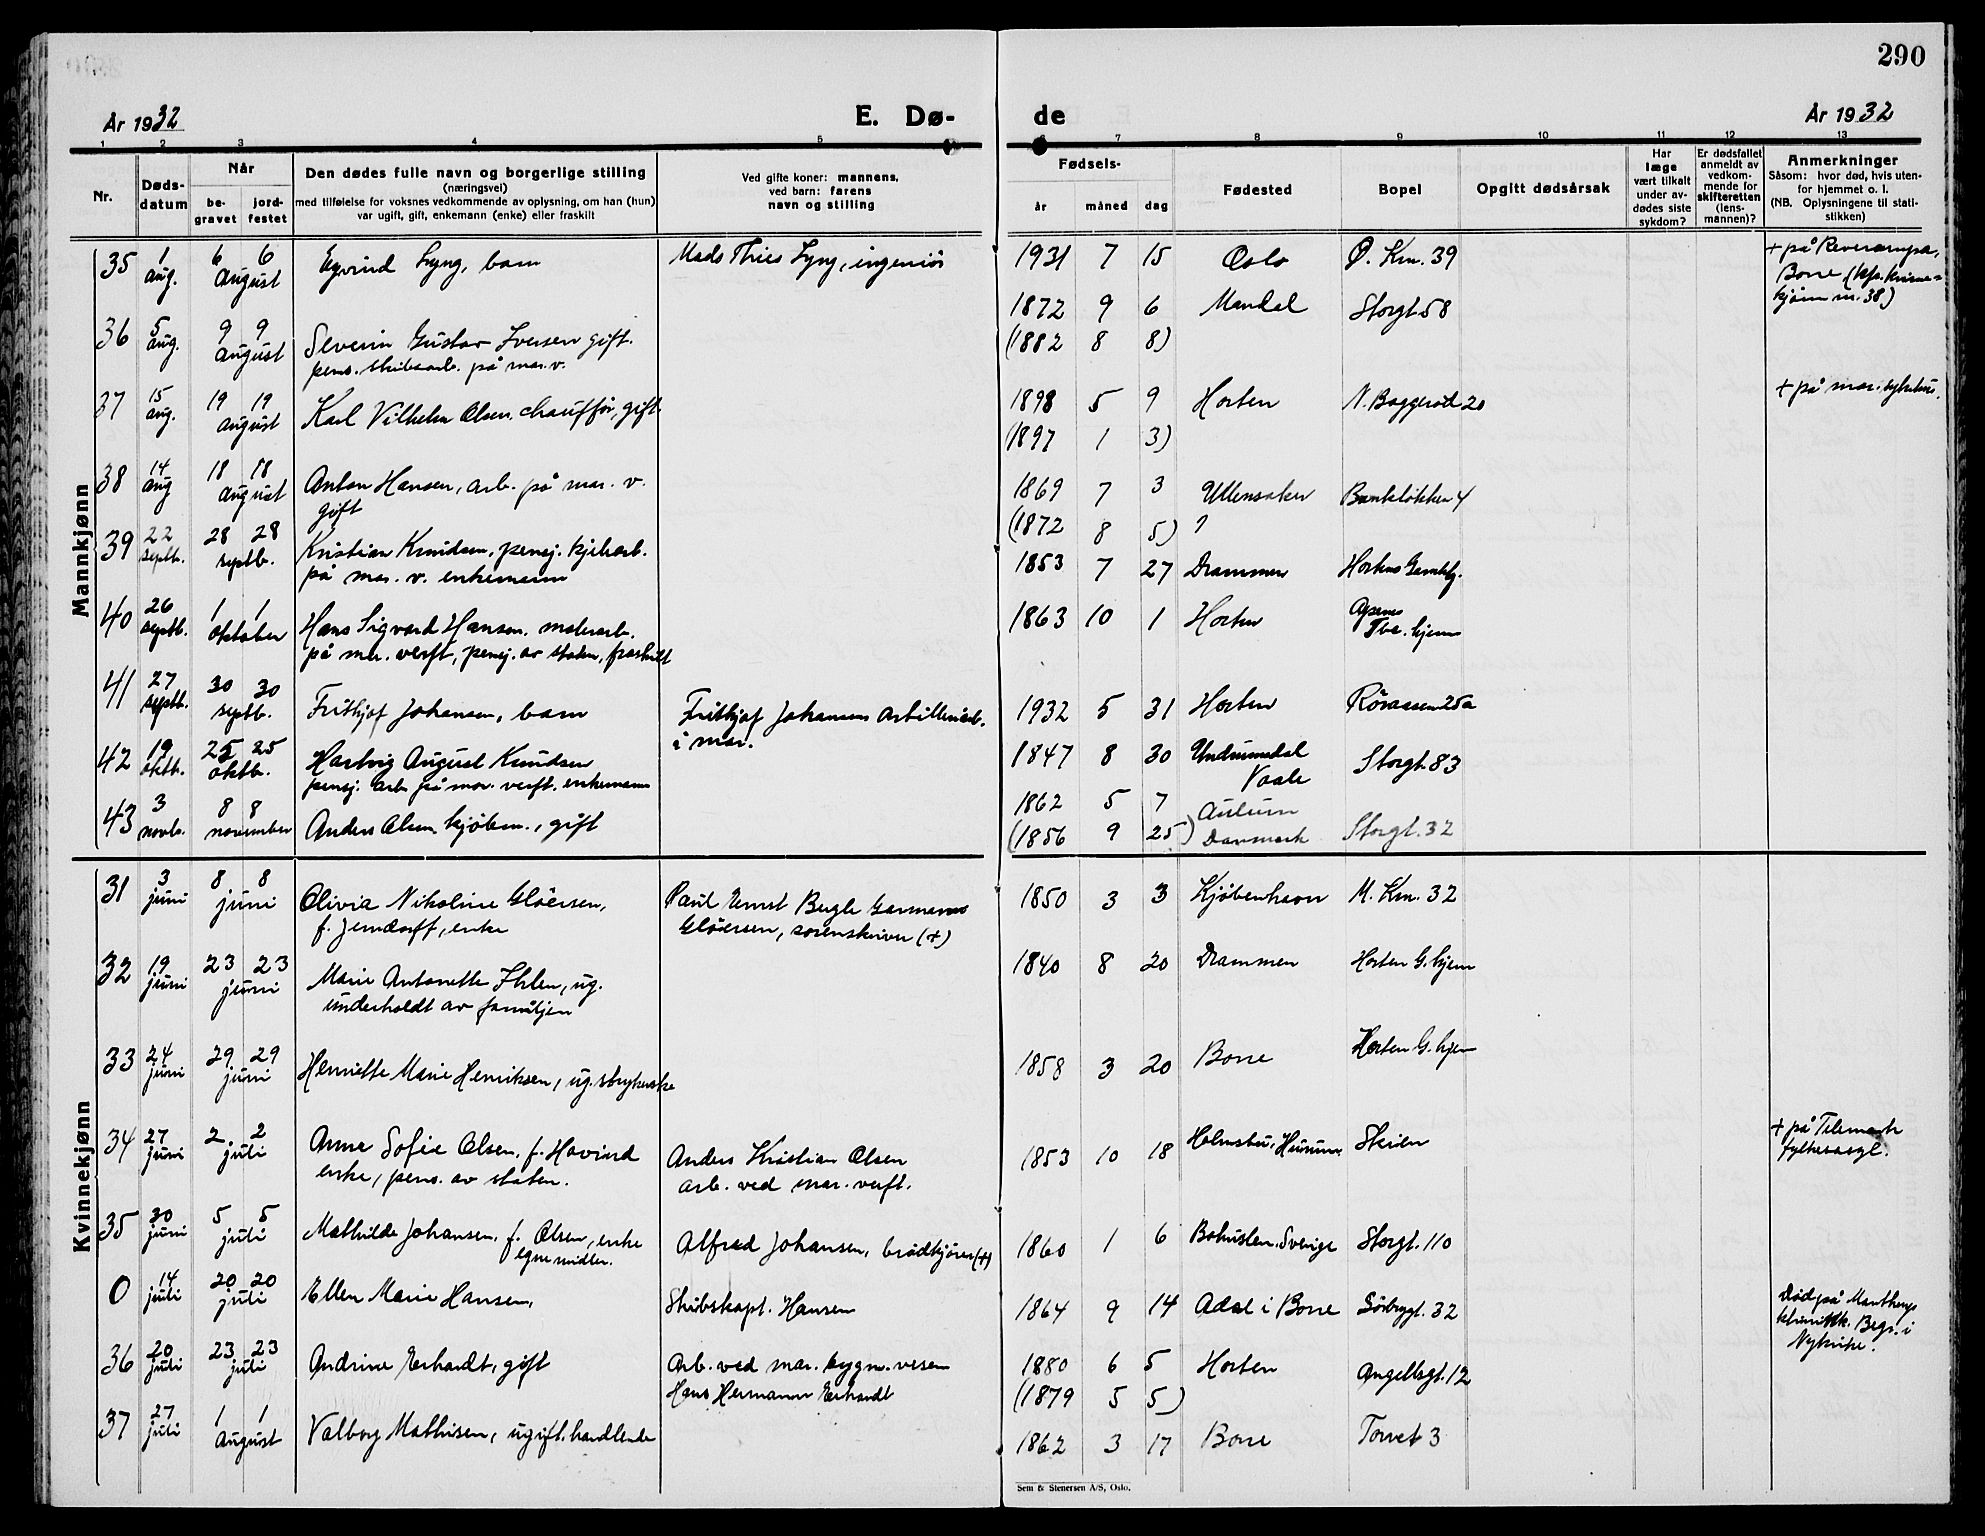 290
År 1932
E. Dø-
de
År 1932
1 2 3 4 5 6 7 8 9 10 11 12 13
Nr.
Døds-
datum
Når
be-
gravet
jord-
festet
Den dødes fulle navn og borgerlige stilling
(næringsvei)
med tilføielse for voksnes vedkommende av oplysning, om han (hun)
var ugift, gift, enkemann (enke) eller fraskilt
Ved gifte koner: mannens,
ved barn: farens
navn og stilling
Fødsels-
år måned dag
Fødested
Bopel
Opgitt dødsårsak
Har
læge
vært tilkalt
under av-
dødes siste
sykdom?
Er dødsfallet
anmeldt av
vedkom-
mende for
skifteretten
(lens-
mannen)?
Anmerkninger
Såsom: hvor død, hvis uten-
for hjemmet o. l.
(NB. Oplysningene til stati-
stikken)
Mannkjønn
35 1 aug. 6 6 august Eyvind Lyng, barn Mads Thies Lyng, ingeniør 1931 7 15 Oslo Ø. Km. 39 + på
Borre
36 5 aug. 9 9 august Severin Gustav Iversen gift. 1872 9 6 Mandal Storgt 58
pens. på mar. v. (1882 8 8)
37 15 aug. 19 19 august Karl Vilhelm Olsen, chauffør, gift 1898 5 9 Horten N. Baggerød 20 + på mar. sykehus.
(1897 1 3)
38 14 aug 18 18 august Anton Hansen, arb. på mar. v. 1869 7 3 Ullensaker Bankløkken 4
gift (1872 8 5) ?
39 22 septb. 28 28 septb. Kristian Knudsen, pensj. kjelearb. 1853 7 27 Drammen Hortens Gamlehj.
på mar. v. enkemann
40 26 septb. 1 1 oktober Hans Sigvard Hansen, malerarb. 1863 10 1 Horten Tbc. hjem
på mar. verft, pensj. av staten, fraskilt
41 27 septb. 30 30 septb. Frithjof Johansen, barn Frithjof Johansen Artilleriarb. 1932 5 31 Horten Røråsen 25a
i mar.
42 19 oktb. 25 25 oktb. Hartvig August Knudsen 1847 8 30 Undrumsdal Storgt. 83
pensj. arb. på mar. verft. enkemann Vaale
43 3 novb. 8 8 november Anders Olsen kjøbm., gift 1862 5 7 Aulum
(1856 9 25) Danmark Storgt. 32
Kvinnekjønn
31 3 juni 8 8 juni Olivia Nikoline Gløersen, Paul Ernst Bugle Garmanns 1850 3 3 Kjøbenhavn M. Km. 32
f. Jerndorff, enke Gløersen, sorenskriver (+)
32 19 juni 23 23 juni Marie Antonette Ihlen, ug. 1840 8 20 Drammen Horten G. hjem
underholdt av familjen
33 24 juni 29 29 juni Henriette Marie Henriksen, ug. strykerske 1858 3 20 Borre Horten G. hjem
34 27 juni 2 2 juli Anna Sofie Olsen, f. Hovind Anders Kristian Olsen 1853 10 18 Holmsbu, Hurum Skien + på Telemark
enke, pens. av staten. arb. ved mar. verft. fylkes
35 30 juni 5 5 juli Mathilde Johansen, f. Olsen, enke Alfred Johansen, brødkjører (+) 1860 1 6 Bohuslen, Sverige Storgt. 110
egne midler.
0 14 juli 20 20 juli Ellen Marie Hansen, Skibskapt. Hansen 1864 9 14 Adal i Borre Sørbygt. 32 Død på Mantheys
klinikk. Begr. i
Nykirke.
36 20 juli 23 23 juli Andrine Erhardt, gift Arb. ved mar. bygn. vesen 1880 6 5 Horten Angellsgt. 12
Hans Hermann Erhardt (1879 5 5)
37 27 juli 1 1 august Valborg Mathisen, ugift, handlende 1862 3 17 Borre Torvet 3
Sem & Stenersen A/S, Oslo.